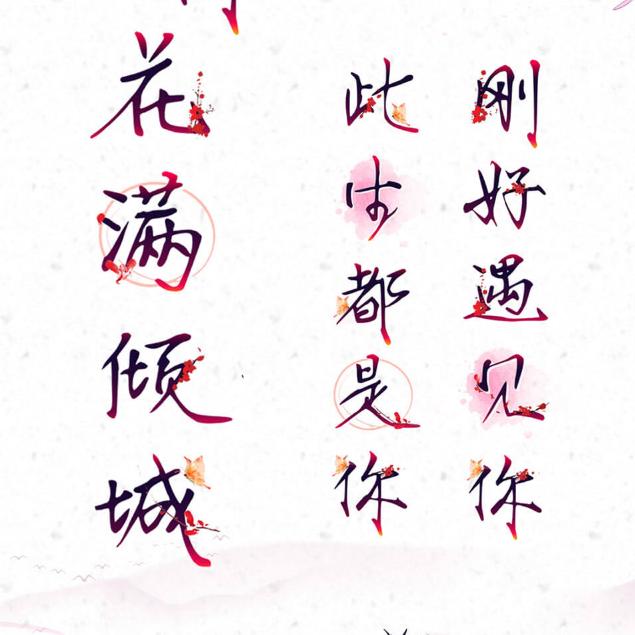 刚好遇见你
此生都是你
花满倾城